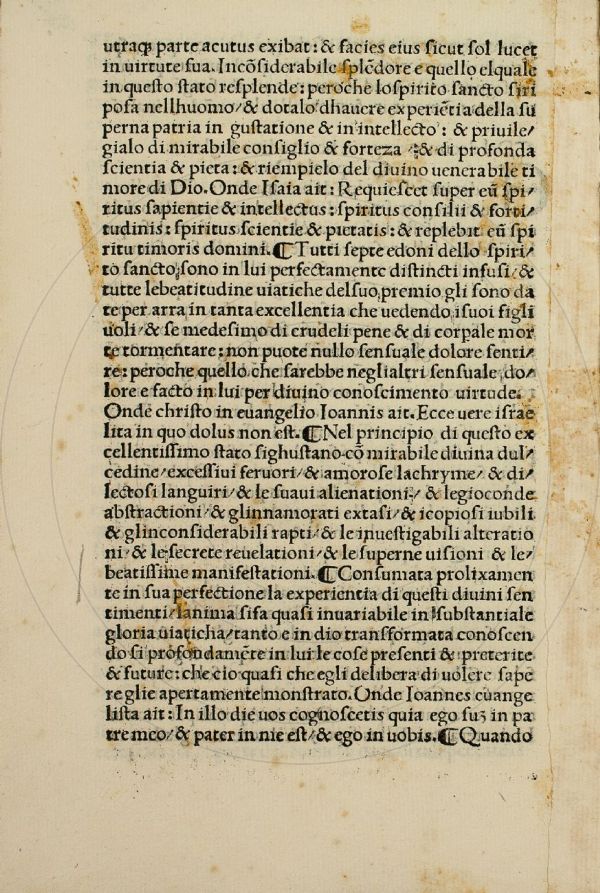 utraqꝫ parte acutus exibat: & facies eius sicut sol lucet
in uirtute sua. Incõsiderabile splẽdore e quello elquale
in questo stato resplende: peroche lospirito sancto siri
posa nellhuomo/ & dotalo dhauere experiẽtia della su
perna patria in gustatione & in intellecto: & priuile/
gialo di mirabile consiglio & forteza :& di profonda
scientia & pieta: & riempielo del diuino uenerabile ti
more di Dio. Onde Isaia ait: Requiescet super eũ spi/
ritus sapientie & intellectus: spiritus consilii & forti/
tudinis: spiritus scientie & pietatis: & replebit eũ spi
ritu timoris domini. ¶Tutti septe edoni dello spiri/
to sancto sono in lui perfectamente distincti infusi/ &
tutte lebeatitudine uiatiche delsuo premio gli sono da
te per arra in tanta excellentia che uedendo isuoi figli
uoli/ & se medesimo di crudeli pene & di corpale mor
te tormentare: non puote nullo sensuale dolore senti/
re: peroche quello che sarebbe neglialtri sensuale do/
lore e facto in lui per diuino conoscimento uirtude.
Onde christo in euangelio Ioannis ait. Ecce uere israe
lita in quo dolus non est. ¶Nel principio di questo ex
cellentissimo stato sighustano cõ mirabile diuina dul/
cedine/ excessiui feruori/ & amorose lachryme/ & di/
lectosi languiri/ & le suaui alienationi/ & legioconde
abstractioni/ & glinnamorati extasi/ & icopiosi iubili
& glinconsiderabili rapti/ & le inuestigabili alteratio
ni/ & le secrete reuelationi/ & le superne uisioni & le/
beatissime manifestationi. ¶Consumata prolixamen
te in sua perfectione la experientia di questi diuini sen
timenti/ lanima sifa quasi inuariabile in substantiale
gloria uiaticha/ tanto e in dio transformata conoscen
do si profondamẽte in lui le cose presenti & preterite
& future: che cio quasi che egli delibera di uolere sape
re glie apertamente monstrato. Onde Ioannes euange
lista ait: In illo die uos cognoscetis quia ego suꝫ in pa
tre meo/ & pater in me est/ & ego in uobis. ¶Quando